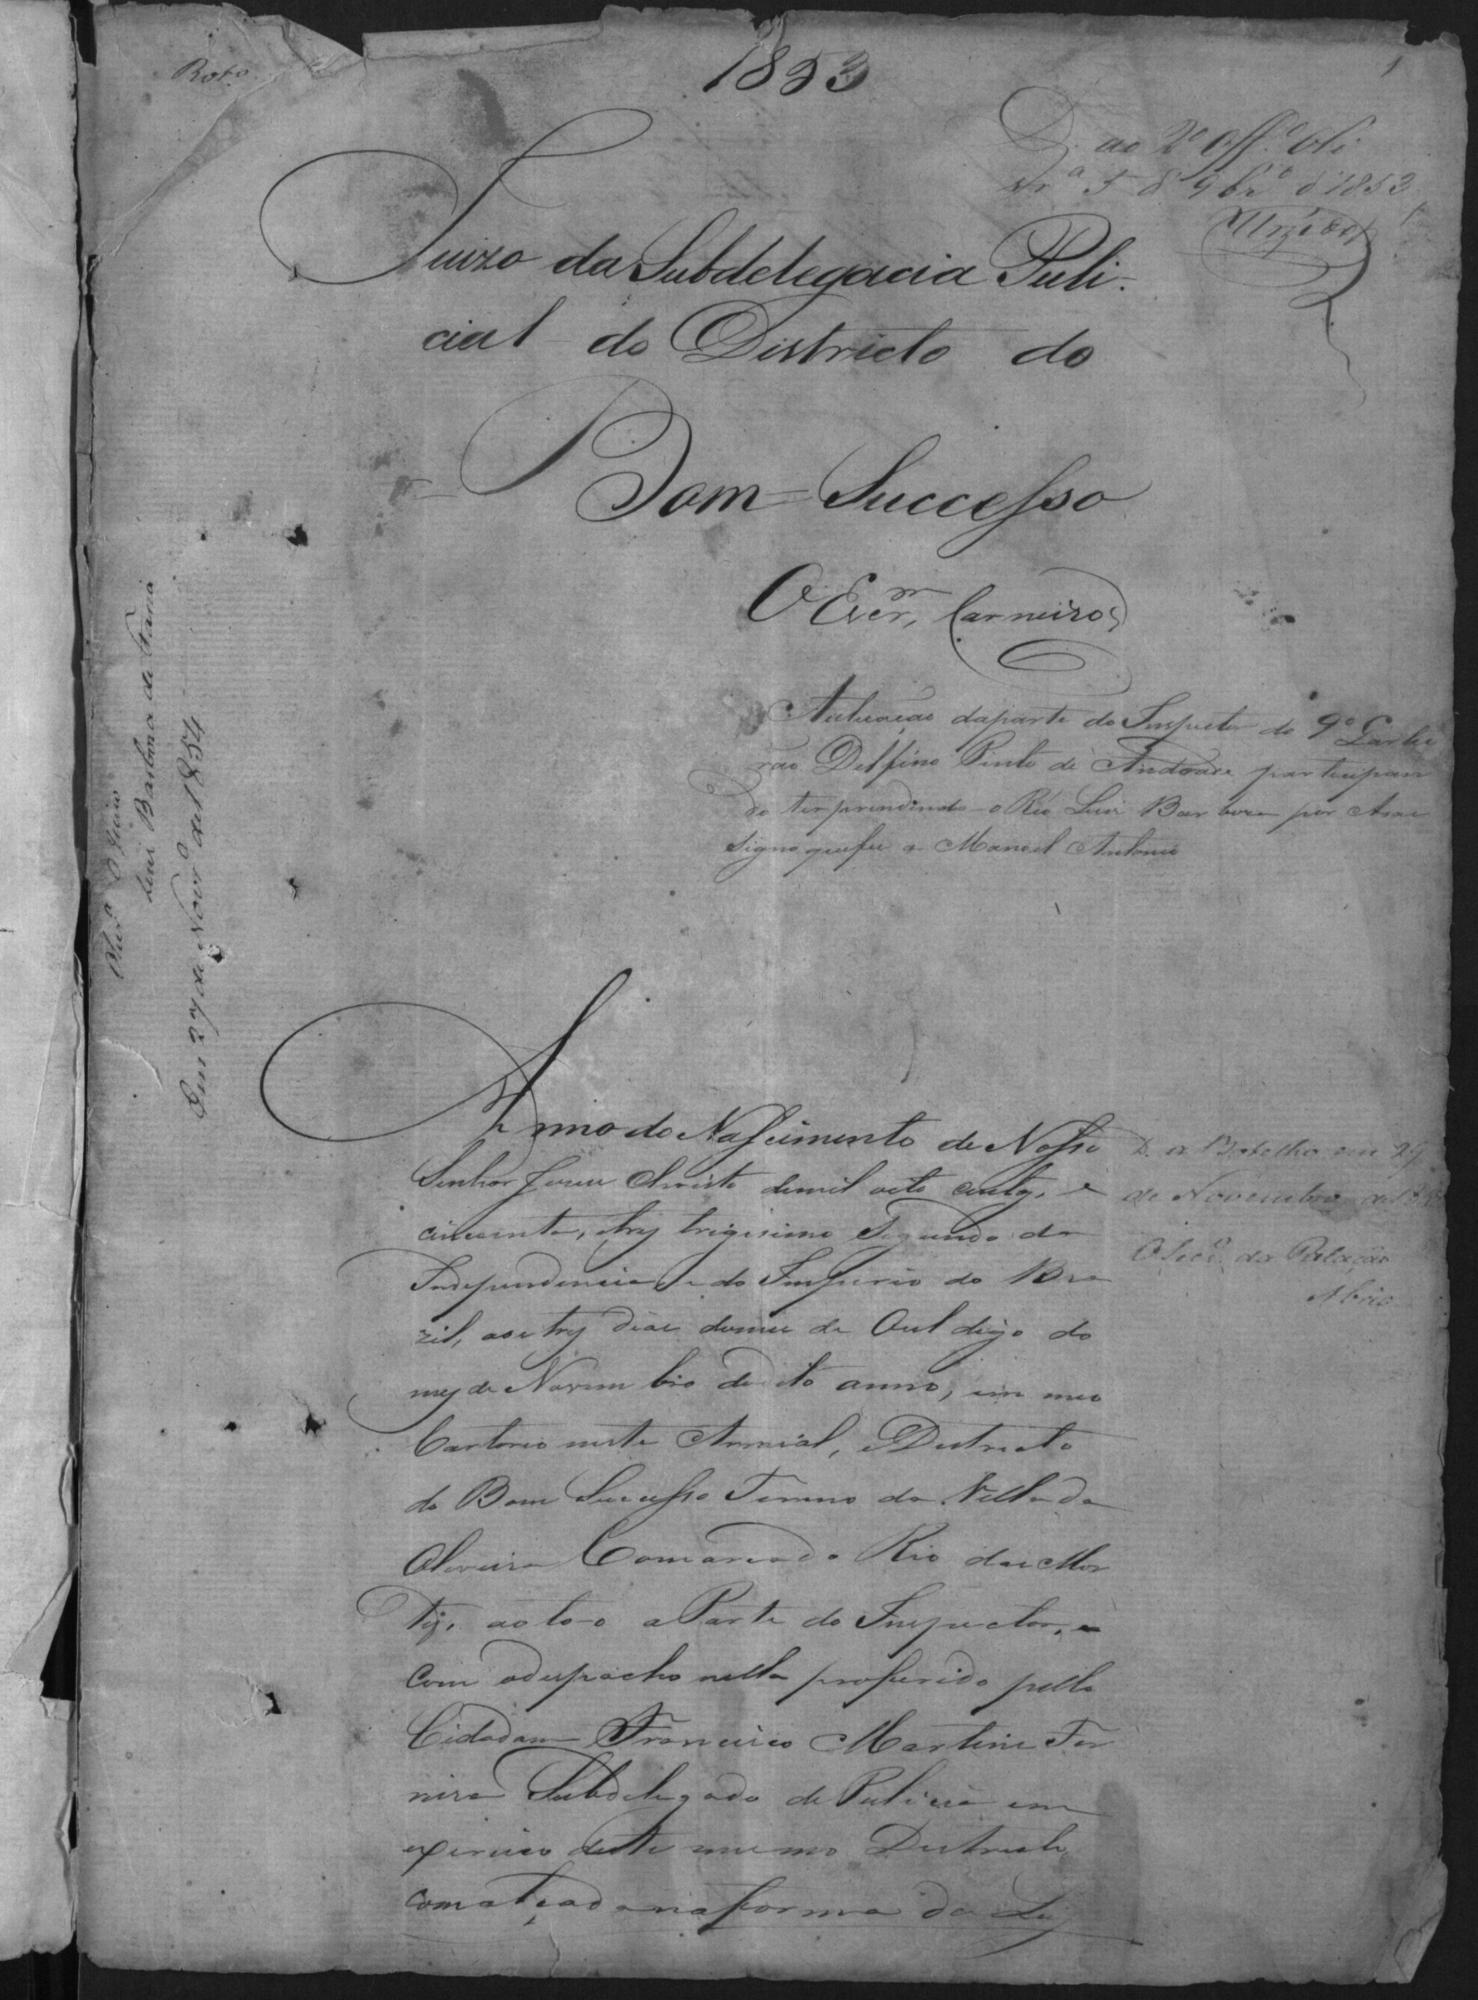 1853
1
D. ao 2º Off.º Oli
vr.ª 5 d 9br.º d 1853
Juizo da Subdelegacia Puli-
cial do Districto do
Bom = Successo
O Escr.m Carneiro
Autuação daparte do Inspector do 9º Quartei
rão Delfino Pinto de Andrade participan
do terprendindo o Réo Luis Barboza por Asse
signoquefes a Manoel Antonio
Anno do Nascimento de Nosso
Senhor Jesus Christo demil oito centos, e
cincoenta, etrez trigesimo Segundo da
Independencia e do Imperio do Bra
zil, aos trez dias domes de Out digo do
mez de Novembro do dito anno, em meo
Cartorio neste Arraial, e Districto
do Bom Successo Termo da Villa da
Oliveira Comarca do Rio das Mor
tes, autoo a Parte do Inspector, e
com odespacho nella proferido pello
Cidadam Francisco Martins Fer
reira Subdelegado de Pulicia em
exercicio deste mesmo Districto
na forma da Lei
D. a Botelho em 29
de Novembro de
O Secr.º da Relação
Luis Barboza de Faria
Em 27 de Novbr.º de 1854